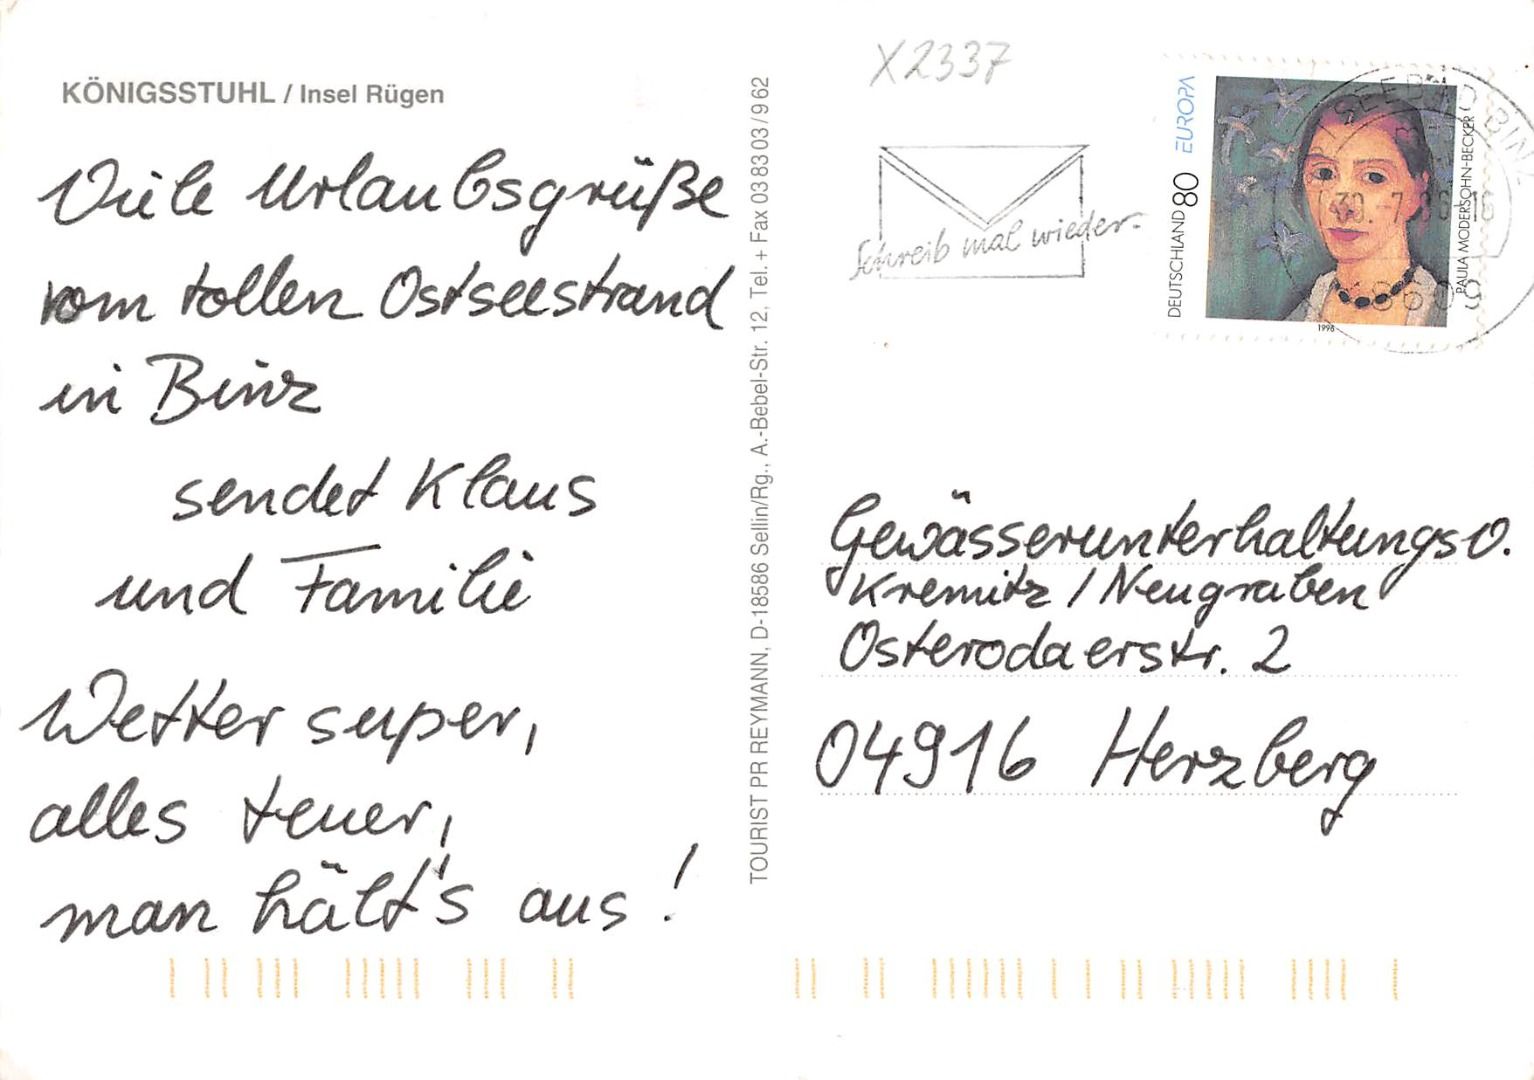 KÖNIGSSTUHL / Insel Rügen
Viele Urlaubsgrüße
vom tollen Ostseestrand
in Binz
sendet Klaus
und Familie
Wetter super,
alles teuer,
man hält's aus!
TOURIST PR REYMANN, D-18586 Sellin/Rg., A.-Bebel-Str. 12, Tel. + Fax 03 83 03 / 9 62
X2337
Schreib mal wieder.
DEUTSCHLAND 80 EUROPA
PAULA MODERSOHN-BECKER
1996
SEEBAD BINZ
18609
Gewässerunterhaltungs O.
Kremitz / Neugraben
Osterodaerstr. 2
04916 Herzberg